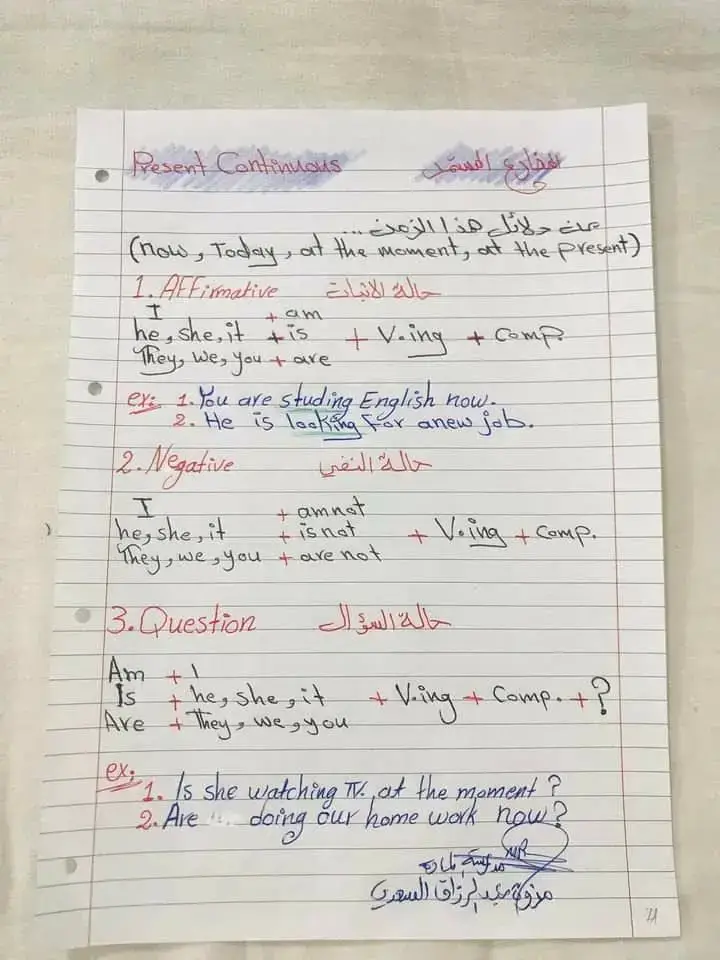 Present Continuous المضارع المستمر
من دلائل هذا الزمن ...
(now, Today, at the moment, at the present)
1. Affirmative حالة الاثبات
I + am
he, she, it + is + V.ing + Comp.
They, we, you + are
ex: 1. You are studing English now.
2. He is looking For anew job.
2. Negative حالة النفي
I + am not
he, she, it + is not + V.ing + Comp.
They, we, you + are not
3. Question حالة السؤال
Am + I
Is + he, she, it + V.ing + Comp. + ?
Are + They, we, you
ex:
1. Is she watching TV. at the moment ?
2. Are doing our home work now?
مدرسة المادة
عبد الرزاق السعدي